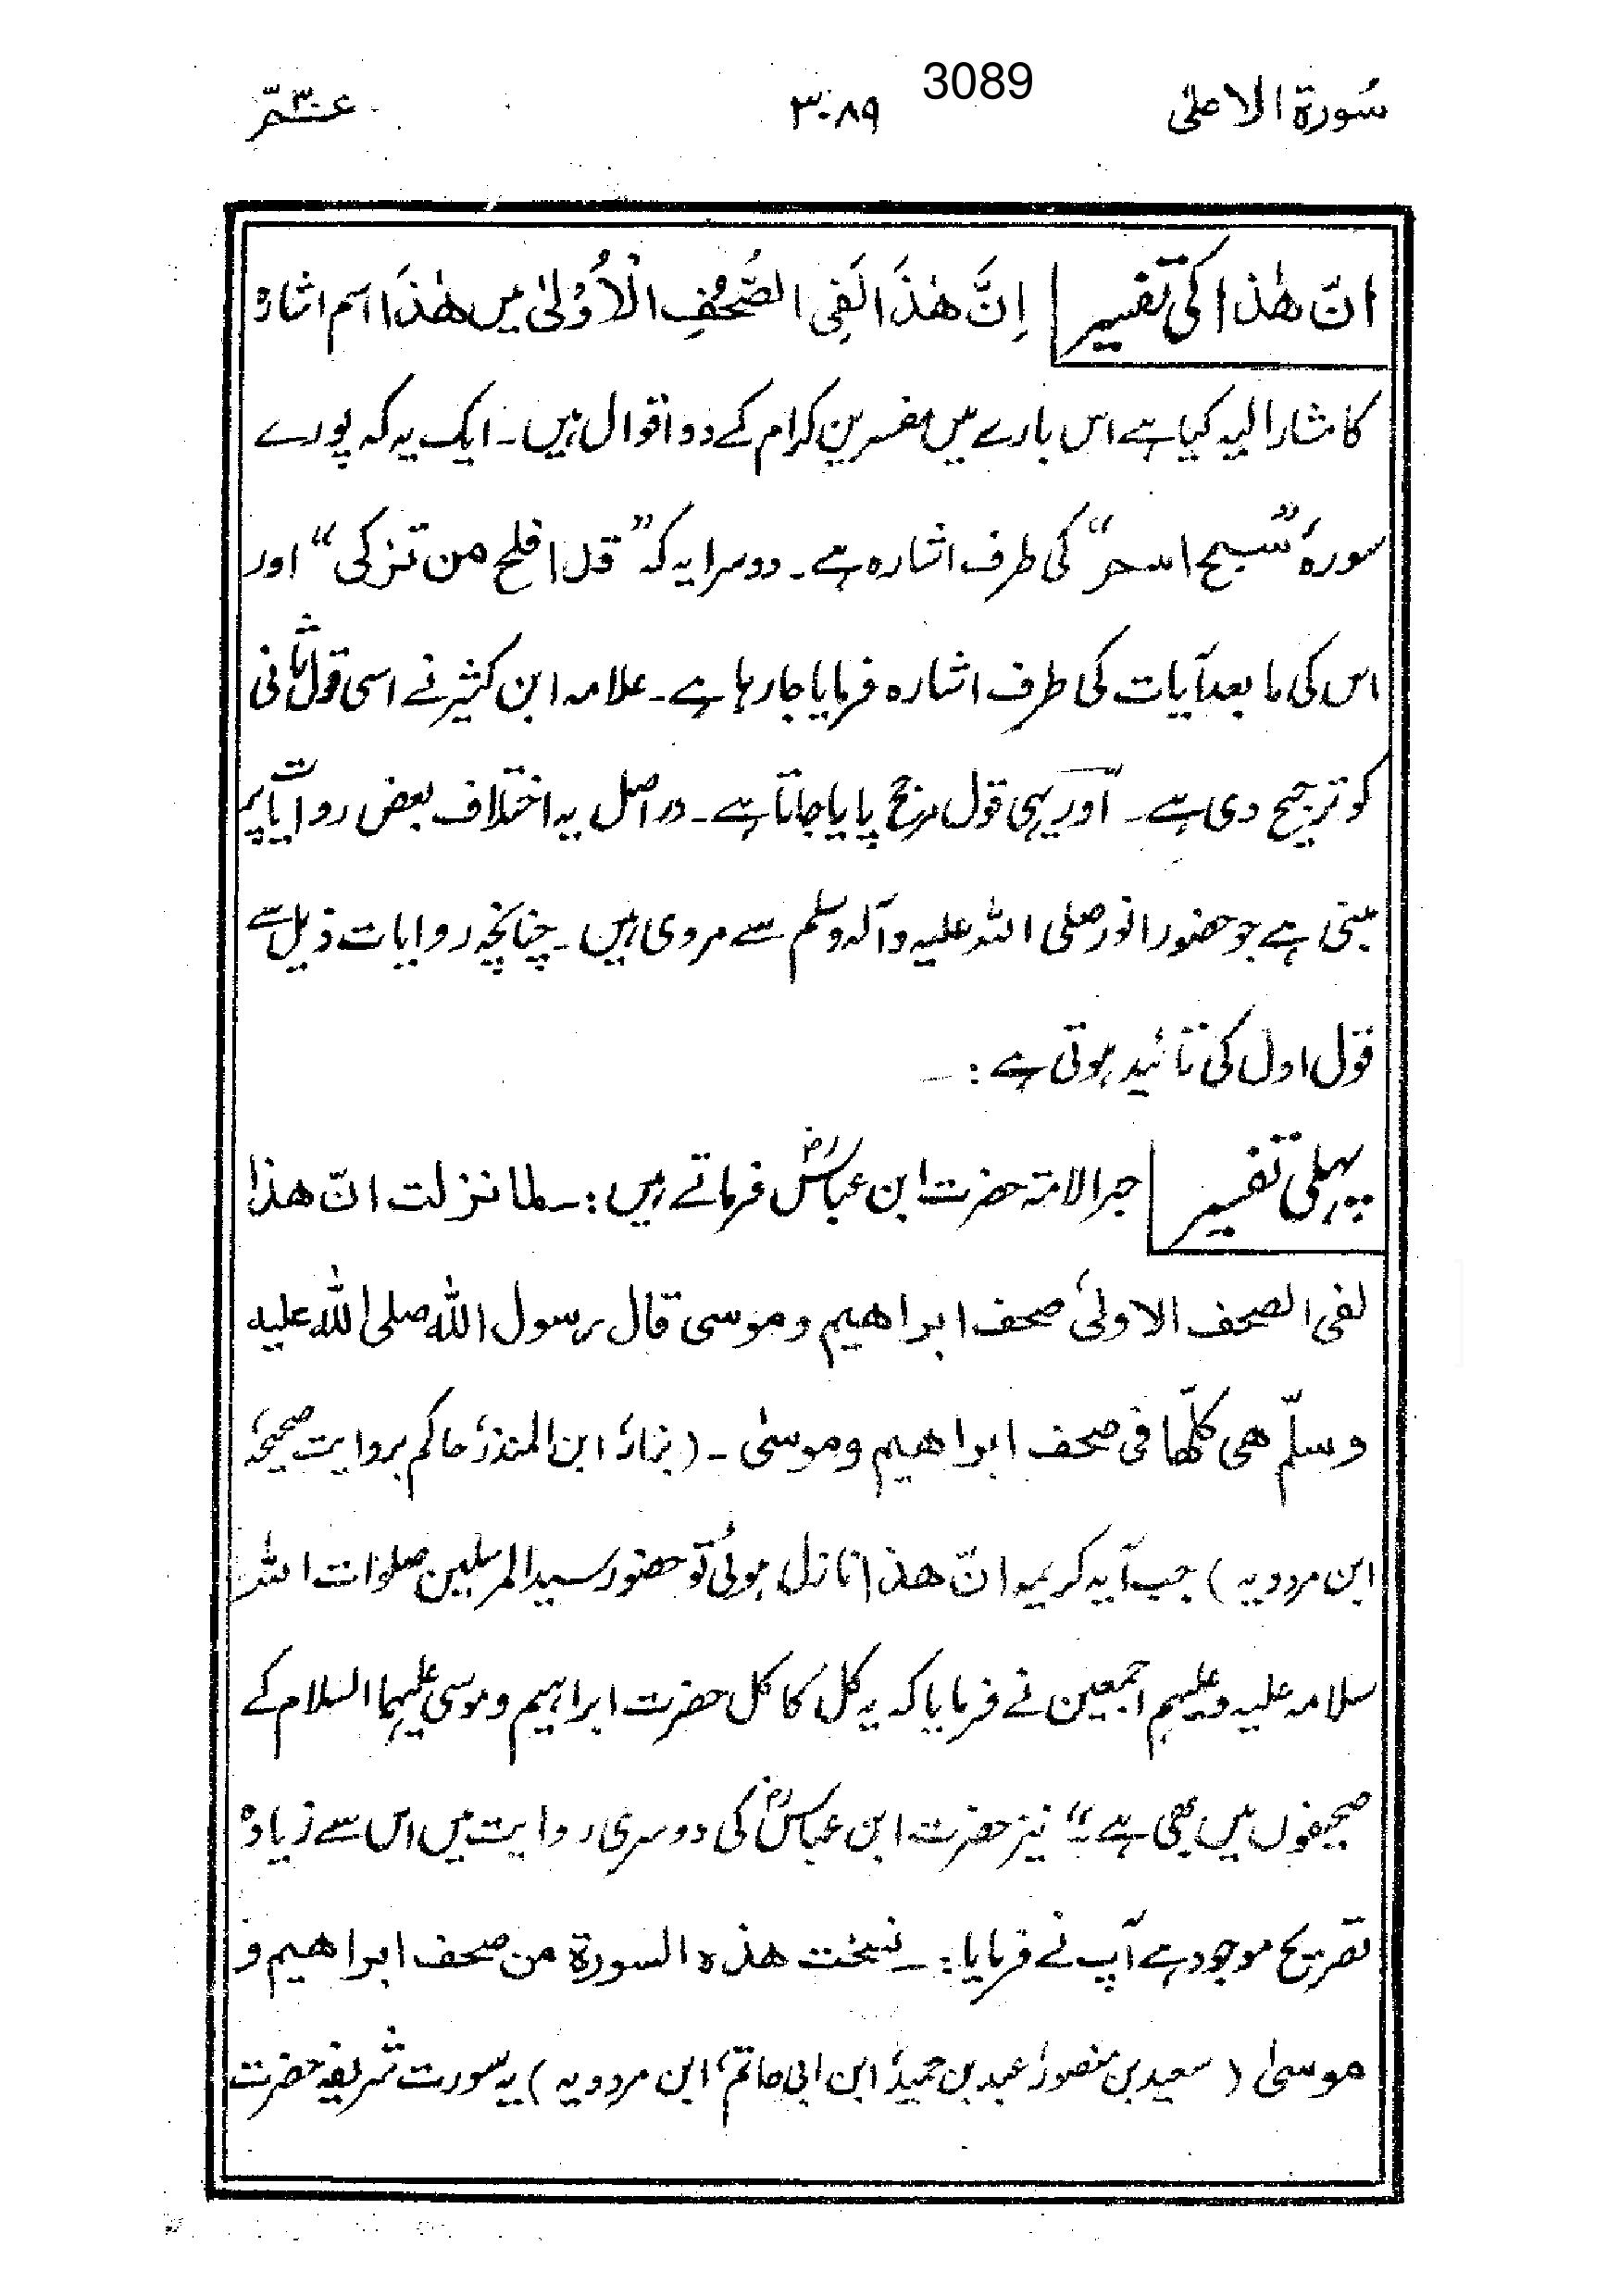 سُورة الاعلیٰ ۳۰۸۹ 3089 عمّ ۳۰
انّ ھٰذا کی تفسیر اِنَّ ھٰذَا لَفِی الصُّحُفِ الْاُوْلیٰ میں ھٰذَا اسم اشارہ
کا مشار الیہ کیا ہے اس بارے میں مفسرین کرام کے دو اقوال ہیں۔ ایک یہ کہ پورے
سورۂ ”سبح اسم“ کی طرف اشارہ ہے۔ دوسرا یہ کہ ”قد افلح من تزکی“ اور
اس کی ما بعد آیات کی طرف اشارہ فرمایا جا رہا ہے۔ علامہ ابن کثیر نے اسی قول ثانی
کو ترجیح دی ہے۔ اور یہی قول مرجح پایا جاتا ہے۔ در اصل یہ اختلاف بعض روایات پر
مبنی ہے جو حضور انور صلی اللہ علیہ وآلہ وسلم سے مروی ہیں۔ چنانچہ روایات ذیل سے
قول اول کی تائید ہوتی ہے :۔
پہلی تفسیر حبر الامۃ حضرت ابن عباسؓ فرماتے ہیں :۔ لما نزلت انّ ھذا
لفی الصحف الاولیٰ صحف ابراھیم وموسی قال رسول اللہ صلی اللہ علیه
وسلّم ھی کلّھا فی صحف ابراھیم وموسیٰ ۔ (بزار، ابن المنذر، حاکم بروایت صحیحہ،
ابن مردویہ) جب آیہ کریمہ انّ ھذا نازل ہوئی تو حضور سید المرسلین صلوات اللہ
سلامہ علیہ وعلیہم اجمعین نے فرمایا کہ یہ کل کا کل حضرت ابراہیم وموسی علیہما السلام کے
صحیفوں میں بھی ہے۔“ نیز حضرت ابن عباسؓ کی دوسری روایت میں اس سے زیادہ
تصریح موجود ہے آپ نے فرمایا :۔ نسخت ھذہ السورۃ من صحف ابراھیم و
موسیٰ (سعید بن منصور، عبد بن حمید، ابن ابی حاتم، ابن مردویہ) یہ سورت شریفہ حضرت